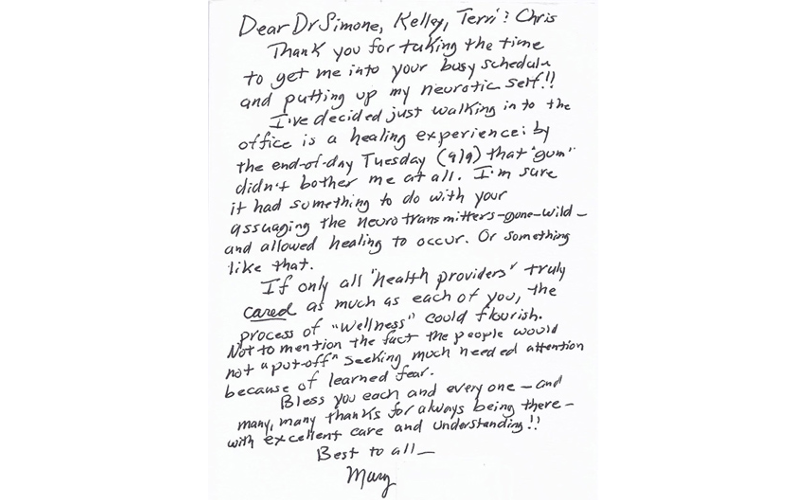 Dear Dr Simone, Kelley, Terri & Chris
Thank you for taking the time
to get me into your busy schedule
and putting up my neurotic self!!
I've decided just walking in to the
office is a healing experience: by
the end-of-day Tuesday (9/9) that "gum"
didn't bother me at all. I'm sure
it had something to do with your
assuaging the neurotransmitters-gone-wild-
and allowed healing to occur. Or something
like that.
If only all "health providers" truly
cared as much as each of you, the
process of "wellness" could flourish.
Not to mention the fact the people would
not "put-off" seeking much needed attention
because of learned fear.
Bless you each and every one - and
many, many thanks for always being there -
with excellent care and understanding!!
Best to all—
Mary